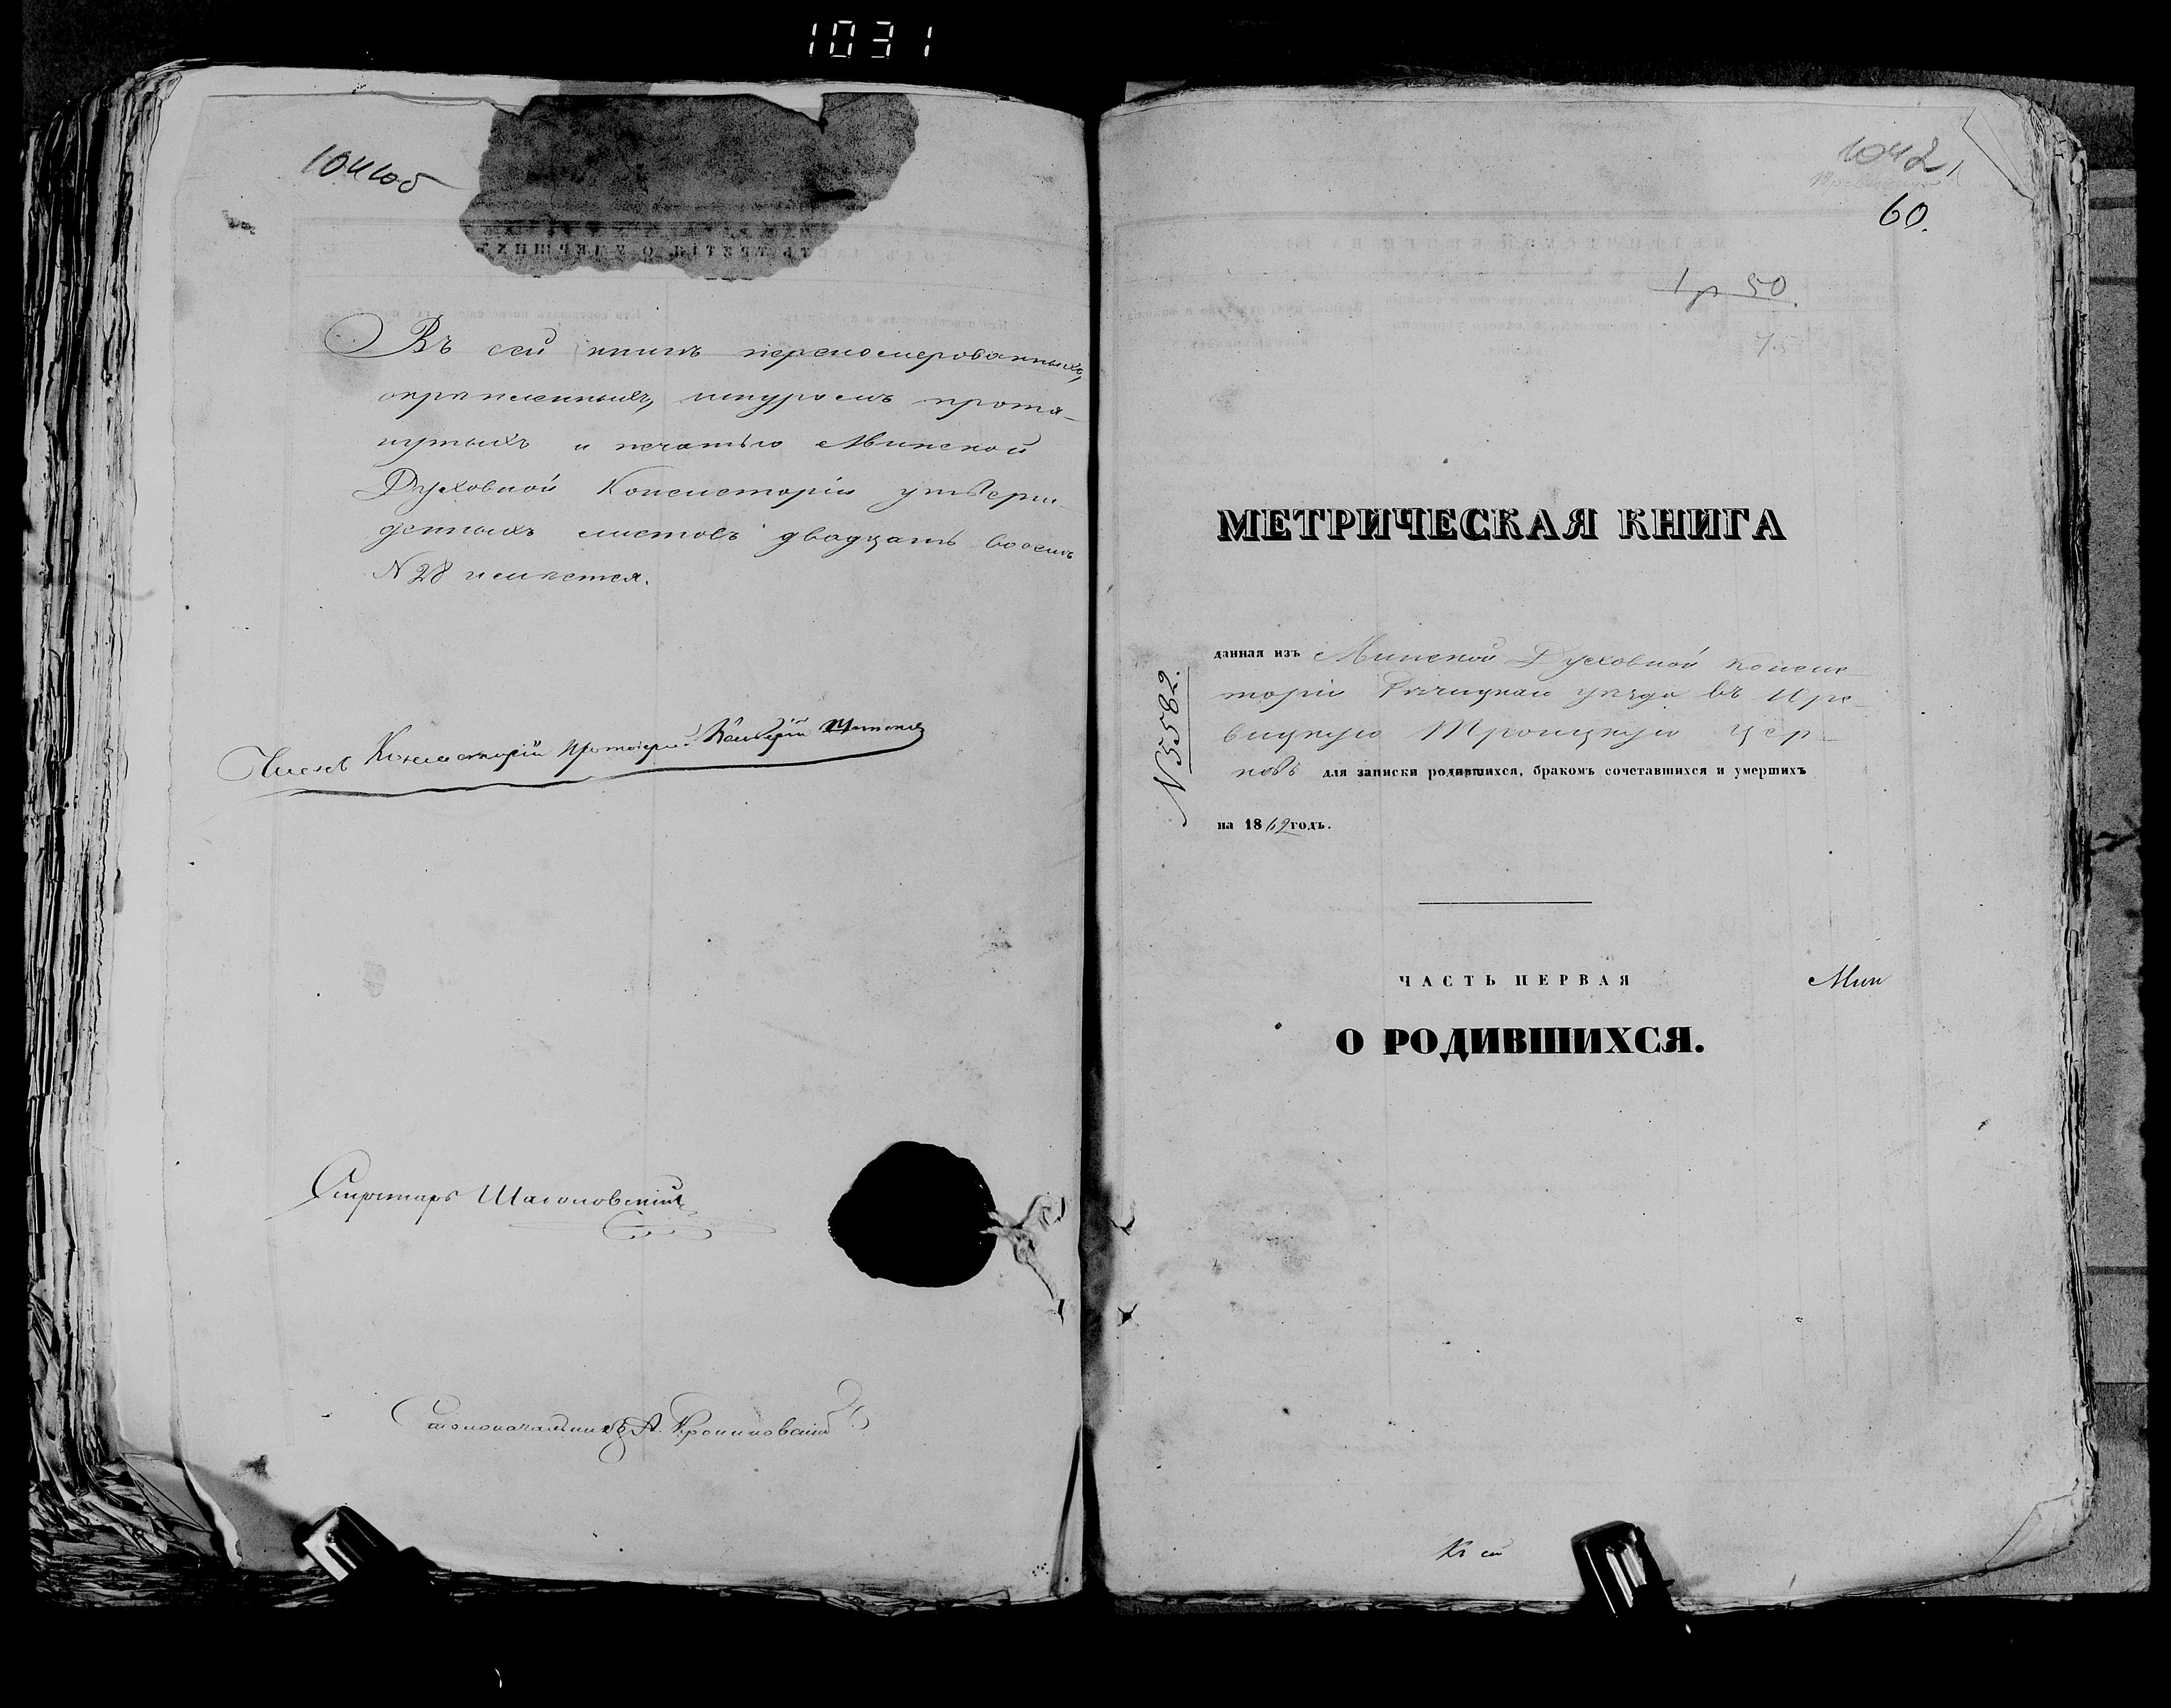 1031
1041об
Въ сей книгѣ переномерованныхъ,
скрѣпленныхъ, шнуромъ протя-
нутыхъ и печатью Минской
Духовной Консисторіи утверж-
денныхъ листовъ двадцать восемь
N 28 имѣется.
Членъ Консисторіи Протоіерей
Секретарь
Столоначальникъ А.
1042
60.
1р 50.
75
МЕТРИЧЕСКАЯ КНИГА
данная изъ Минской Духовной Консис-
торіи Рѣчицкаго уѣзда въ Юре-
вицкую Троицкую цер-
ковь для записки родившихся, бракомъ сочетавшихся и умершихъ
на 1862 годъ.
N 5582.
ЧАСТЬ ПЕРВАЯ
Мин
О РОДИВШИХСЯ.
Къ сей